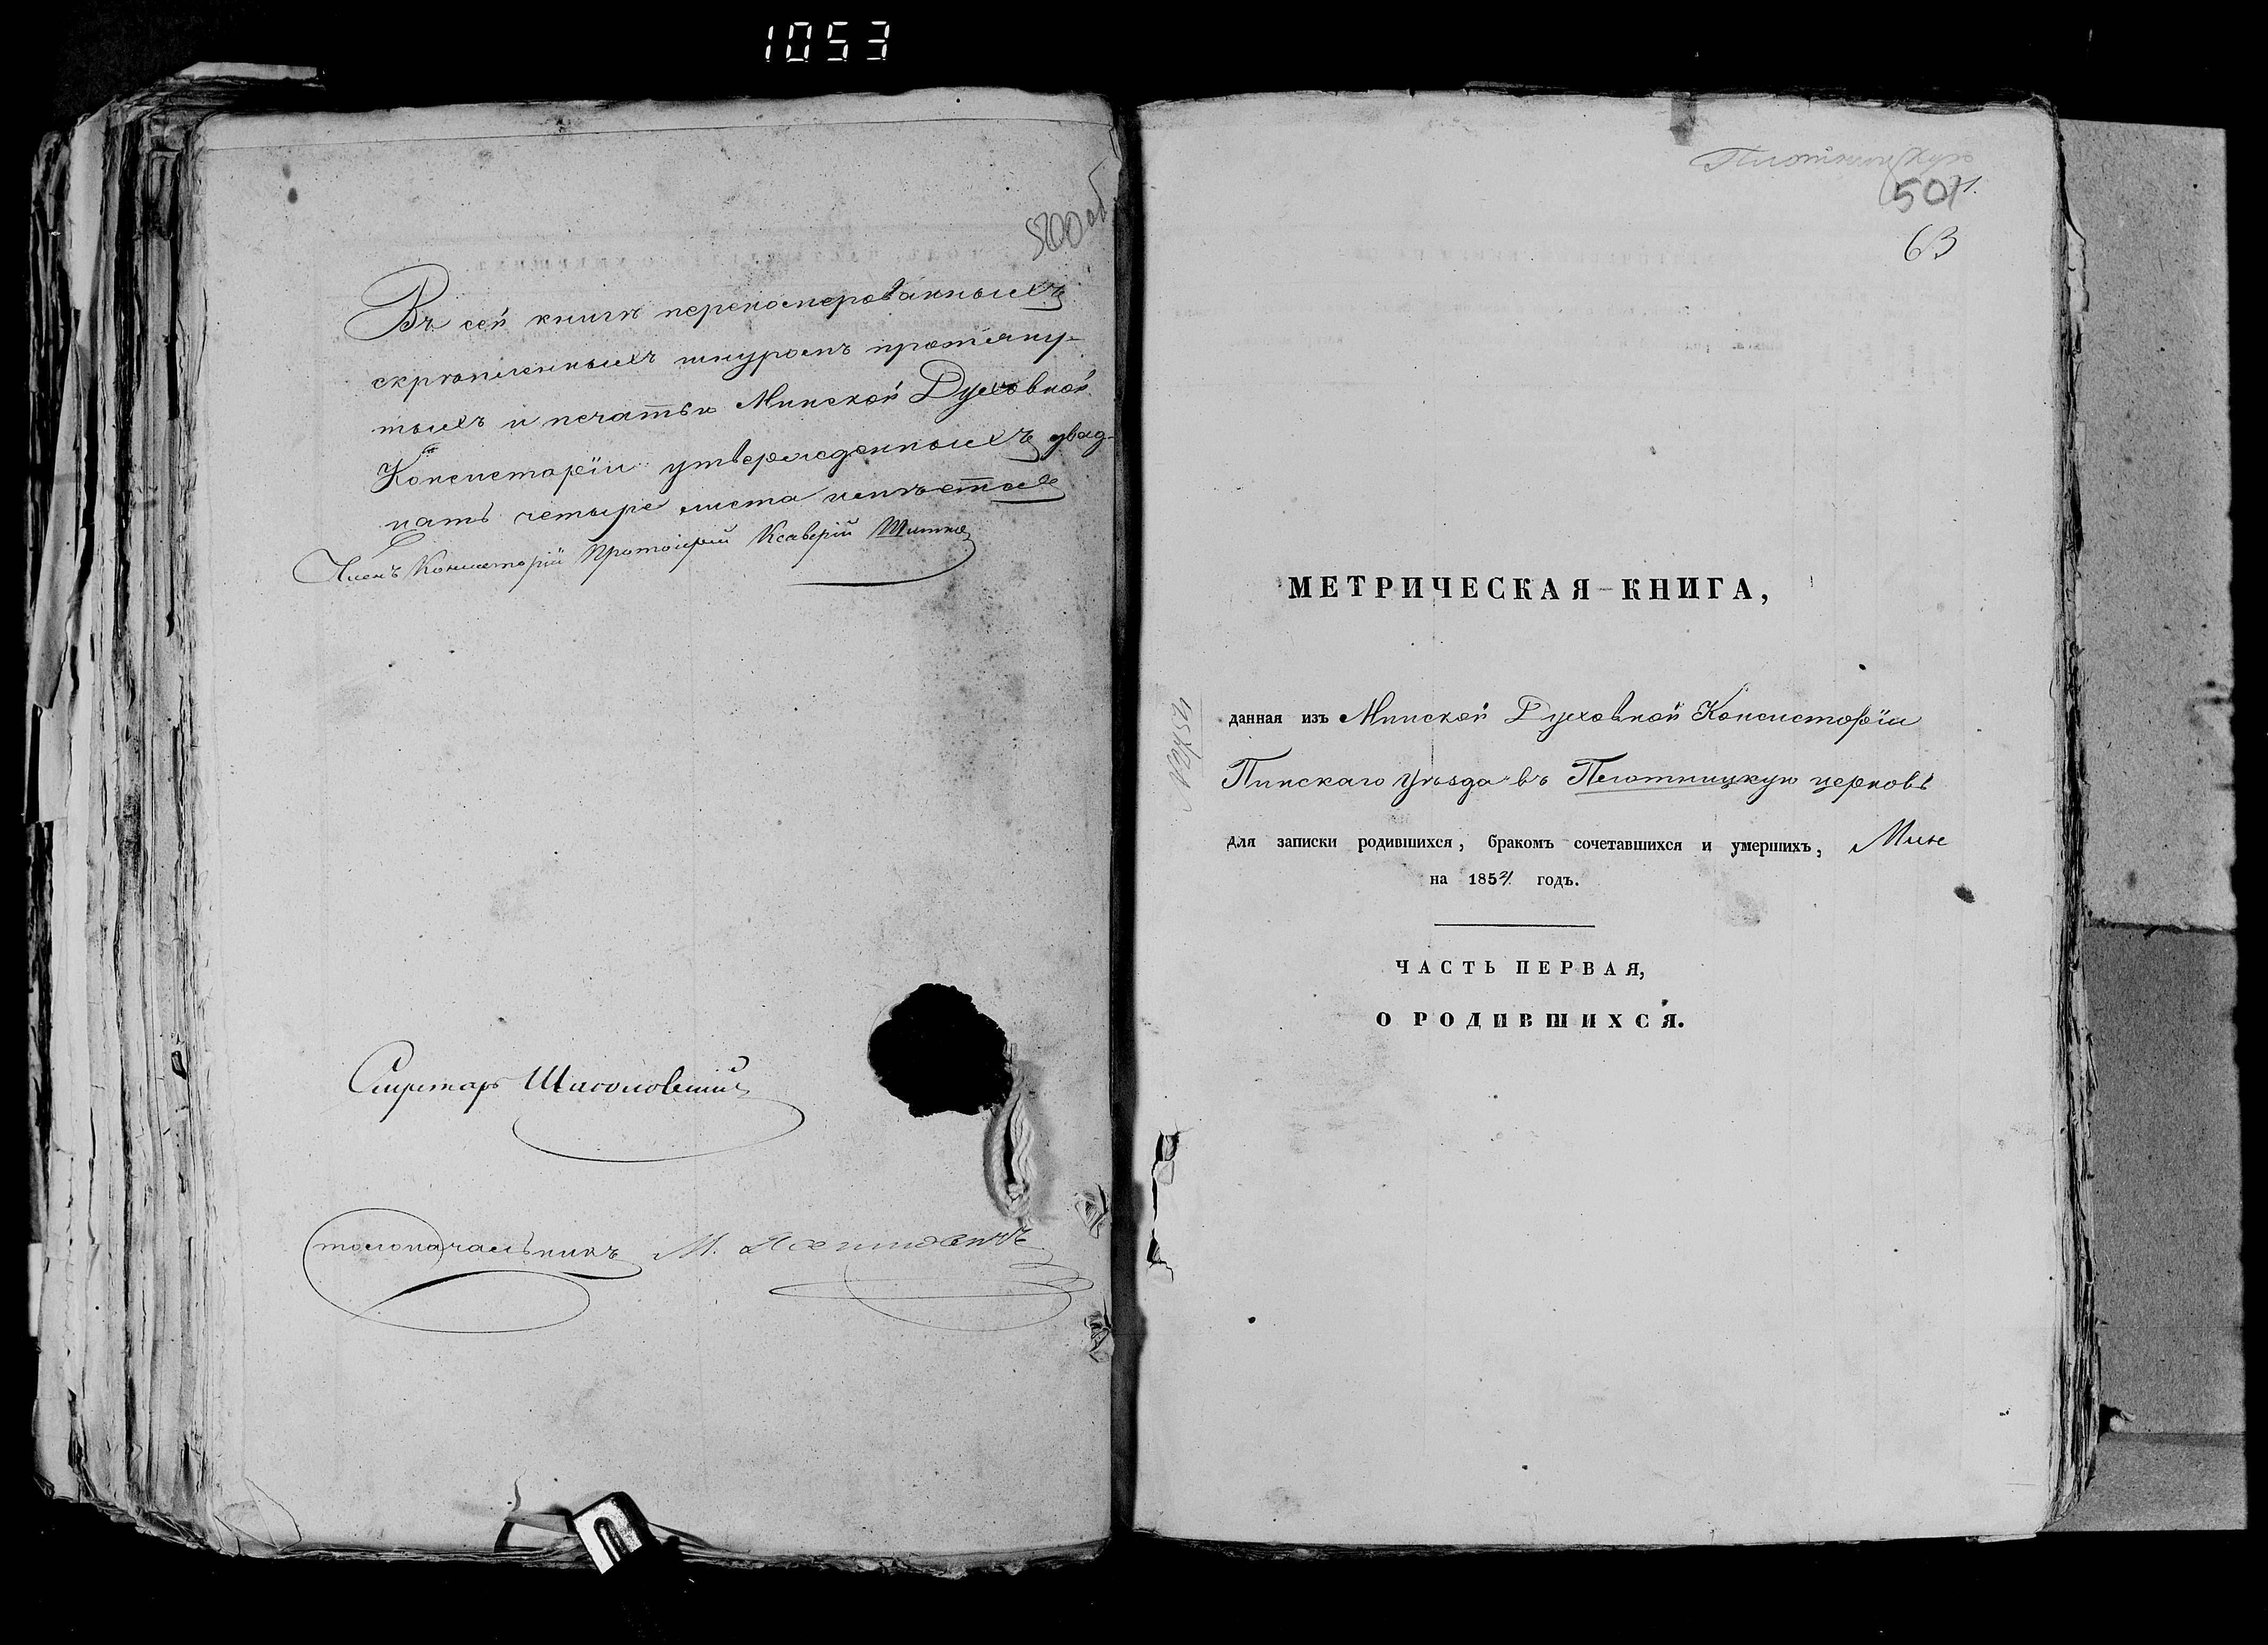 1053
500 об
Въ сей книгѣ переномерованныхъ
скрѣпленныхъ шнуромъ протяну-
тыхъ и печатью Минской Духовной
Консисторіи утвержденныхъ двад-
цать четыре листа
Членъ Консисторіи Протоіерей Ксаверій
Секретарь
Столоначальникъ М.
Плотницкую
501
63
МЕТРИЧЕСКАЯ КНИГА,
данная изъ Минской Духовной Консисторіи
Пинскаго Уѣзда въ Плотницкую церковь
для записки родившихся, бракомъ сочетавшихся и умершихъ,
на 1854 годъ.
ЧАСТЬ ПЕРВАЯ,
О РОДИВШИХСЯ.